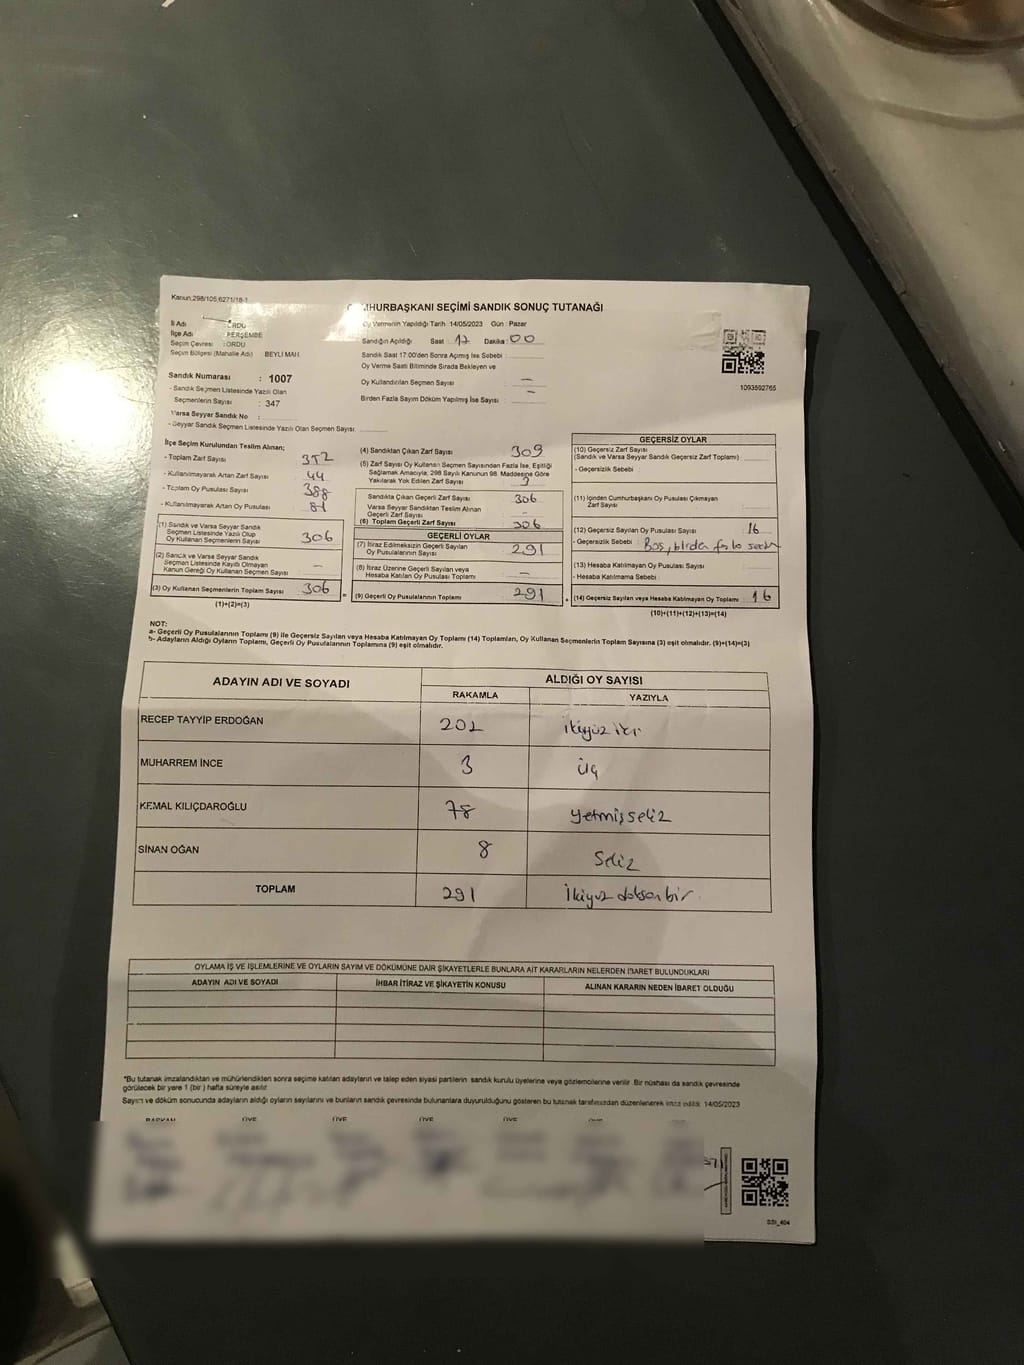 Kanun:298/105,6271/18-1
HURBAŞKANI SEÇİMİ SANDIK SONUÇ TUTANAĞI
İli Adı : ORDU
İlçe Adı : PERŞEMBE
Seçim Çevresi : ORDU
Seçim Bölgesi (Mahalle Adı) BEYLİ MAH.
Oy Vermenin Yapıldığı Tarih :14/05/2023 Gün : Pazar
Sandığın Açıldığı Saat : 17 Dakika : 00
Sandık Saat 17:00'den Sonra Açımış İse Sebebi :
Oy Verme Saati Bitiminde Sırada Bekleyen ve
Oy Kullandırılan Seçmen Sayısı : —
Birden Fazla Sayım Döküm Yapılmış İse Sayısı : —
1093592765
Sandık Numarası : 1007
- Sandık Seçmen Listesinde Yazılı Olan
Seçmenlerin Sayısı : 347
Varsa Seyyar Sandık No :
- Seyyar Sandık Seçmen Listesinde Yazılı Olan Seçmen Sayısı:
İlçe Seçim Kurulundan Teslim Alınan;
- Toplam Zarf Sayısı 352
- Kullanılmayarak Artan Zarf Sayısı 44
- Toplam Oy Pusulası Sayısı 388
- Kullanılmayarak Artan Oy Pusulası Sayısı 81
(1) Sandık ve Varsa Seyyar Sandık
Seçmen Listesinde Yazılı Olup
Oy Kullanan Seçmenlerin Sayısı 306
(2) Sandık ve Varsa Seyyar Sandık
Seçmen Listesinde Kayıtlı Olmayan
Kanun Gereği Oy Kullanan Seçmen Sayısı —
(3) Oy Kullanan Seçmenlerin Toplam Sayısı 306
(1)+(2)=(3)
(4) Sandıktan Çıkan Zarf Sayısı 309
(5) Zarf Sayısı Oy Kullanan Seçmen Sayısından Fazla İse, Eşitliği
Sağlamak Amacıyla, 298 Sayılı Kanunun 98. Maddesine Göre
Yakılarak Yok Edilen Zarf Sayısı 3
Sandıkta Çıkan Geçerli Zarf Sayısı 306
Varsa Seyyar Sandıktan Teslim Alınan
Geçerli Zarf Sayısı —
(6) Toplam Geçerli Zarf Sayısı 306
GEÇERLİ OYLAR
(7) İtiraz Edilmeksizin Geçerli Sayılan
Oy Pusulalarının Sayısı 291
(8) İtiraz Üzerine Geçerli Sayılan veya
Hesaba Katılan Oy Pusulası Toplamı —
(9) Geçerli Oy Pusulalarının Toplamı 291
GEÇERSİZ OYLAR
(10) Geçersiz Zarf Sayısı
(Sandık ve Varsa Seyyar Sandık Geçersiz Zarf Toplamı) :
- Geçersizlik Sebebi
(11) İçinden Cumhurbaşkanı Oy Pusulası Çıkmayan
Zarf Sayısı
(12) Geçersiz Sayılan Oy Pusulası Sayısı 16
- Geçersizlik Sebebi : Boş, birden fazla
(13) Hesaba Katılmayan Oy Pusulası Sayısı
- Hesaba Katılmama Sebebi
(14) Geçersiz Sayılan veya Hesaba Katılmayan Oy Toplamı 16
(10)+(11)+(12)+(13)=(14)
NOT:
a- Geçerli Oy Pusulalarının Toplamı (9) ile Geçersiz Sayılan veya Hesaba Katılmayan Oy Toplamı (14) Toplamları, Oy Kullanan Seçmenlerin Toplam Sayısına (3) eşit olmalıdır. (9)+(14)=(3)
b- Adayların Aldığı Oyların Toplamı, Geçerli Oy Pusulalarının Toplamına (9) eşit olmalıdır.
ADAYIN ADI VE SOYADI
ALDIĞI OY SAYISI
RAKAMLA YAZIYLA
RECEP TAYYİP ERDOĞAN 202 ikiyüz iki
MUHARREM İNCE 3 üç
KEMAL KILIÇDAROĞLU 78 yetmişsekiz
SİNAN OĞAN 8 Sekiz
TOPLAM 291 İkiyüz doksan bir
OYLAMA İŞ VE İŞLEMLERİNE VE OYLARIN SAYIM VE DÖKÜMÜNE DAİR ŞİKAYETLERLE BUNLARA AİT KARARLARIN NELERDEN İBARET BULUNDUKLARI
ADAYIN ADI VE SOYADI İHBAR İTİRAZ VE ŞİKAYETİN KONUSU ALINAN KARARIN NEDEN İBARET OLDUĞU
*Bu tutanak imzalandıktan ve mühürlendikten sonra seçime katılan adayların ve talep eden siyasi partilerin sandık kurulu üyelerine veya gözlemcilerine verilir. Bir nüshası da sandık çevresinde
görülecek bir yere 1 (bir) hafta süreyle asılır.
Sayım ve döküm sonucunda adayların aldığı oyların sayılarını ve bunların sandık çevresinde bulunanlara duyurulduğunu gösteren bu tutanak tarafımızdan düzenlenerek imza edildi. 14/05/2023
BAŞKAN ÜYE ÜYE ÜYE ÜYE ÜYE
SSI_404